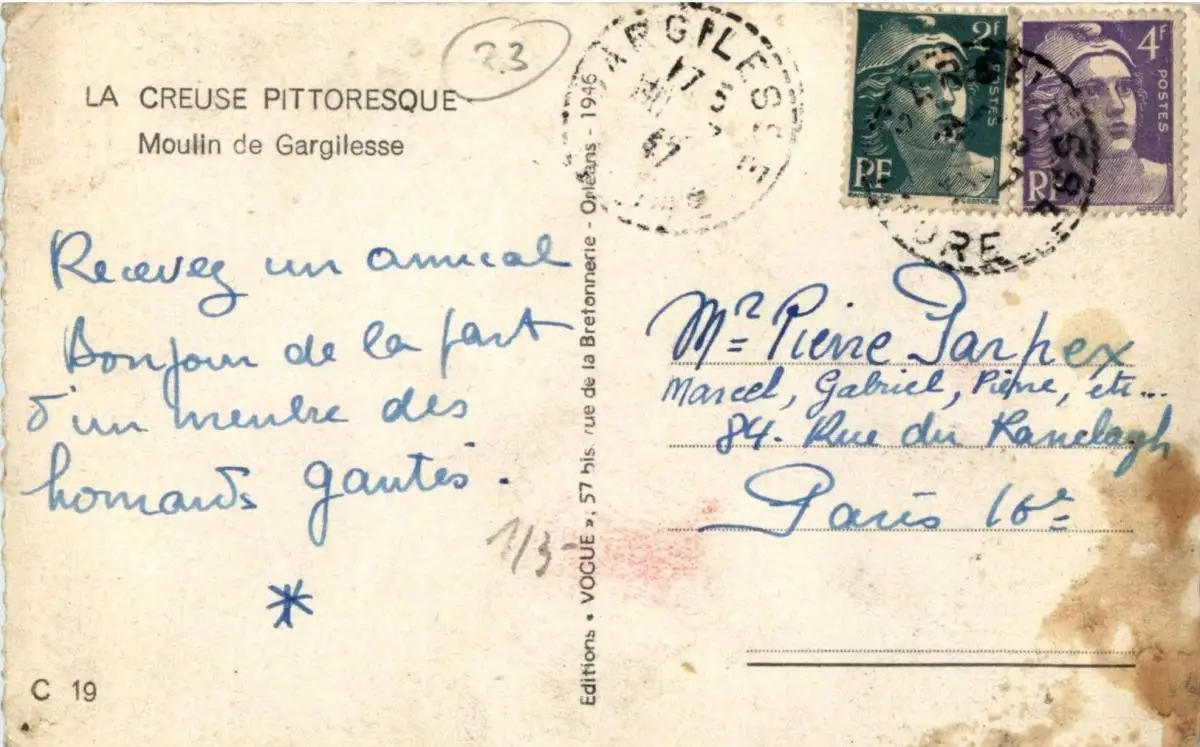 23
LA CREUSE PITTORESQUE
Moulin de Gargilesse
Recevez un amical
Bonjour de la part
d'un membre des
homards gantés.
*
C 19
1/3-
Editions « VOGUE », 57 bis rue de la Bretonnerie - Orléans - 1946
GARGILESSE
17 5
47
2F
POSTES
RF
4F
POSTES
RF
INDRE
Mr Pierre Parpex
Marcel, Gabriel, Pierre, etc...
84. Rue du Ranelagh
Paris 16e